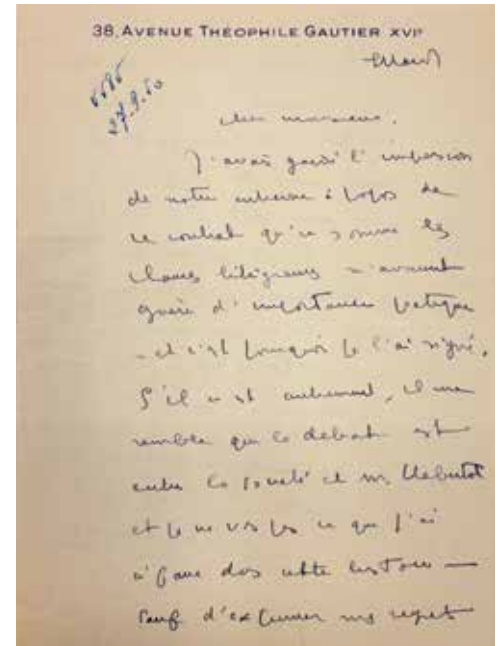 38, AVENUE THÉOPHILE GAUTIER XVIe
Mardi
27.9.50
Cher monsieur,
J'avais gardé l'impression
de notre entrevue à propos de
ce contrat qu'en somme les
clauses litigieuses n'avaient
guère d'importance pratique
- et c'est pourquoi je l'ai signé.
S'il en est autrement, il me
semble que le débat est
entre la société et M.
et je ne vois pas ce que j'ai
à faire dans cette histoire —
sauf d'exprimer mes regrets